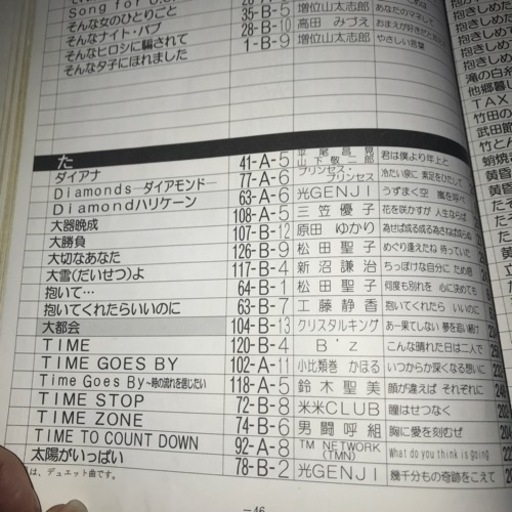 Song for U.S.
そんな女のひとりごと 35-B-8 増位山太志郎 あなたのマネして
そんなナイト・パブ 28-B-10 増位山太志郎
そんなヒロシに騙されて 1-B-9 高田 みづえ おまえが好きだと
そんな夕子にほれました 増位山太志郎 やさしい言葉
た
ダイアナ 41-A-5 平尾昌晃 山下敬二郎 君は僕より年上と
Diamonds ―ダイアモンド― 77-A-6 プリンセス・プリンセス 冷たい泉に 素足をひたして
Diamondハリケーン 63-A-6 光GENJI うずまく空 嵐を呼べ
大器晩成 108-A-5 三笠優子 花を咲かすが 人生ならば
大勝負 107-B-12 原田 ゆかり 為せば成る成る為さねば成らぬ
大切なあなた 126-B-9 松田聖子 めぐり逢えたね 待っていた
大雪(だいせつ)よ 117-B-4 新沼謙治 ちっぽけな自分に ため息
抱いて… 64-B-1 松田聖子 何度も別れを 心に決めても
抱いてくれたらいいのに 63-B-7 工藤静香 抱いてくれたら いいのに
大都会 104-B-13 クリスタルキング あー果てしない 夢を追い続け
TIME 120-B-4 B'z こんな晴れた日は二人で
TIME GOES BY 102-A-11 小比類巻 かほる いつからか深くなる想いに
Time Goes By ～時の流れを信じたい 118-A-5 鈴木聖美 顔が違えば それぞれに
TIME STOP 72-B-8 米米CLUB 瞳はせつなく
TIME ZONE 74-B-6 男闘呼組 胸に愛を刻むぜ
TIME TO COUNT DOWN 92-A-8 TM NETWORK (TMN) What do you think is going
太陽がいっぱい 78-B-2 光GENJI 幾千分もの奇跡をこえて
は、デュエット曲です。
-46
抱きしめ
抱きしめ
抱きしめ
滝の白糸
他郷暮し
TAX
竹田の
武田節
竹とん
蛸焼
黄昏
黄昏